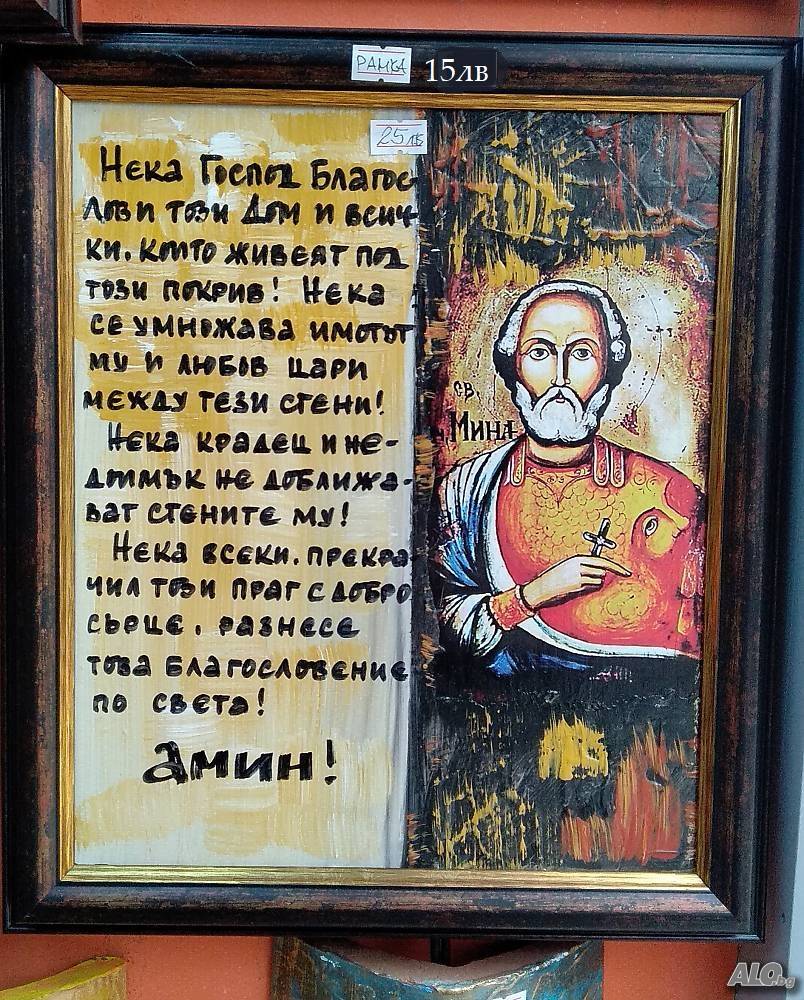 РАМКА 15лв
25лв
Нека Господ Благос-
лови този Дом и всич-
ки, които живеят под
този покрив! Нека
се умножава имотът
му и любов цари
между тези стени!
Нека крадец и не-
доимък не доближа-
ват стените му!
Нека всеки, прекра-
чил този праг с добро
сърце, разнесе
това благословение
по света!
Амин!
св.
Мина
ALO.bg